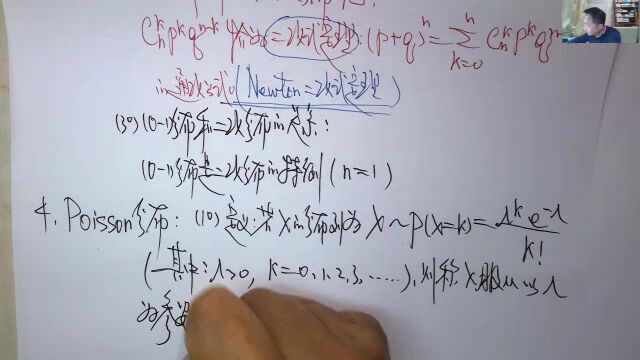 C_n^k p^k q^{n-k} 为二项式定理: (p+q)^n = \sum_{k=0}^{n} C_n^k p^k q^{n-k}
(Newton二项式定理)
(3°) (0-1)分布和二项分布的关系:
(0-1)分布是二项分布的特例 (n=1)
4. Poisson分布: (1°) 定义: 若X的分布列为 X~P(X=k)= \frac{λ^k e^{-λ}}{k!}
(其中: λ>0, k=0,1,2,3,……), 则称X服从以λ
为参数